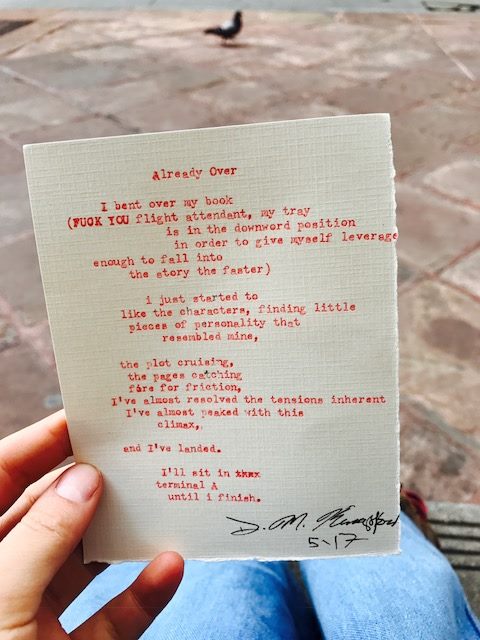 Already Over
I bent over my book
(FUCK YOU flight attendant, my tray
is in the downword position
in order to give myself leverage
enough to fall into
the story the faster)
i just started to
like the characters, finding little
pieces of personality that
resembled mine,
the plot cruising,
the pages catching
fire for friction,
I've almost resolved the tensions inherent
I've almost peaked with this
climax,
and I've landed.
I'll sit in
terminal A
until i finish.
D. M.
5-17